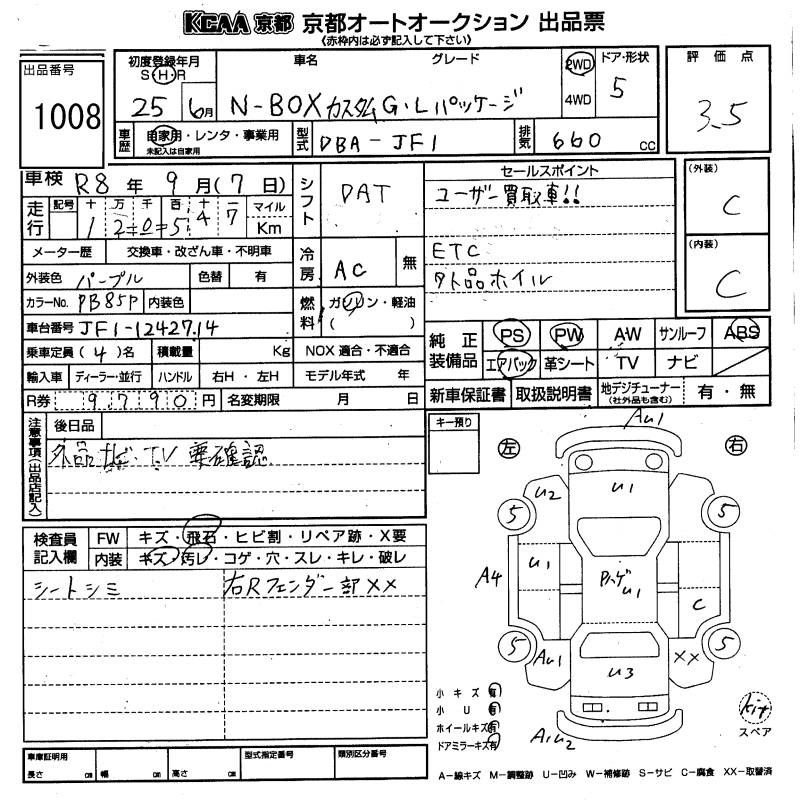 KCAA 京都 京都オートオークション 出品票
(赤枠内は必ず記入して下さい)
出品番号
1008
初度登録年月
S・H・R
25 6月
車名 グレード
N-BOX カスタム G・Lパッケージ
2WD
4WD
ドア・形状
5
評価点
3.5
車歴
自家用・レンタ・事業用
未記入は自家用
型式
DBA-JF1
排気
660 cc
車検 R8 年 9 月(7 日)
走行
記号 十 万 千 百 十 一
1 2 0 5 4 7
マイル
Km
シフト
DAT
セールスポイント
ユーザー買取車!!
ETC
外品ホイル
(外装)
C
(内装)
C
メーター歴 交換車・改ざん車・不明車
冷房
AC 無
外装色 パープル 色替 有
カラーNo. PB85P 内装色
燃料
ガソリン・軽油
( )
車台番号 JF1-1242714
乗車定員 (4)名 積載量 Kg
NOX 適合・不適合
輸入車 ディーラー・並行 ハンドル 右H・左H
モデル年式 年
R券 9,790 円 名変期限 月 日
純正装備品
PS PW AW サンルーフ ABS
エアバック 革シート TV ナビ
新車保証書 取扱説明書 地デジチューナー (社外品も含む) 有・無
注意事項(出品店記入)
後日品
外品ナビ TV 要確認
キー預り
左 右
検査員記入欄
FW キズ・飛石・ヒビ割・リペア跡・X要
内装 キズ・汚レ・コゲ・穴・スレ・キレ・破レ
シートシミ
右Rフェンダー部XX
AU1
U2 U1
5 5
U1
A4
Pハゲ
U1
C
5 5
AU1 XX
U3
A1U2
小キズ 有
小U 有
ホイールキズ 有
ドアミラーキズ 有
kit
スペア
車庫証明用
長さ cm 幅 cm 高さ cm
型式指定番号
類別区分番号
A-線キズ M-調整跡 U-凹み W-補修跡 S-サビ C-腐食 XX-取替済